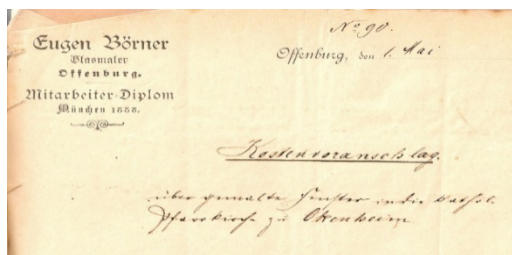 No 90.
Eugen Börner
Glasmaler
Offenburg.
Mitarbeiter-Diplom
München 1888.
Offenburg, den 1. Mai
Kostenvoranschlag.
über gemalte Fenster in die kathol.
Pfarrkirche zu Ottenheim